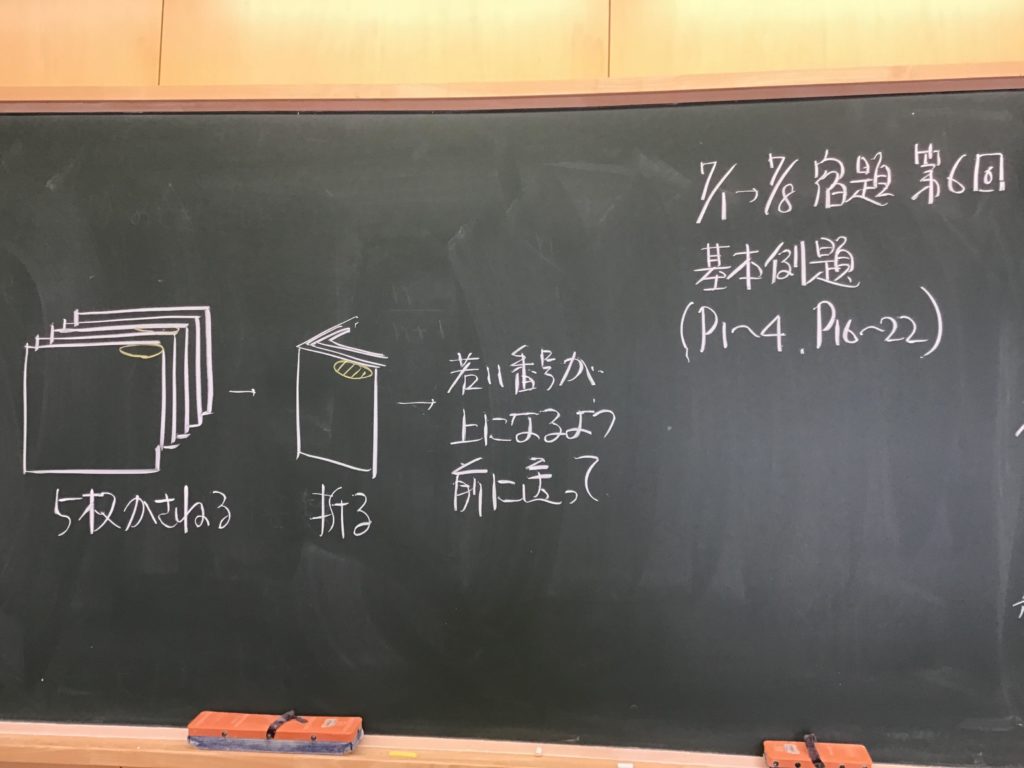 5枚かさねる
→
折る
→
若い番号が
上になるよう
前に送って
7/1→7/8 宿題 第6回
基本例題
(P1~4, P16~22)